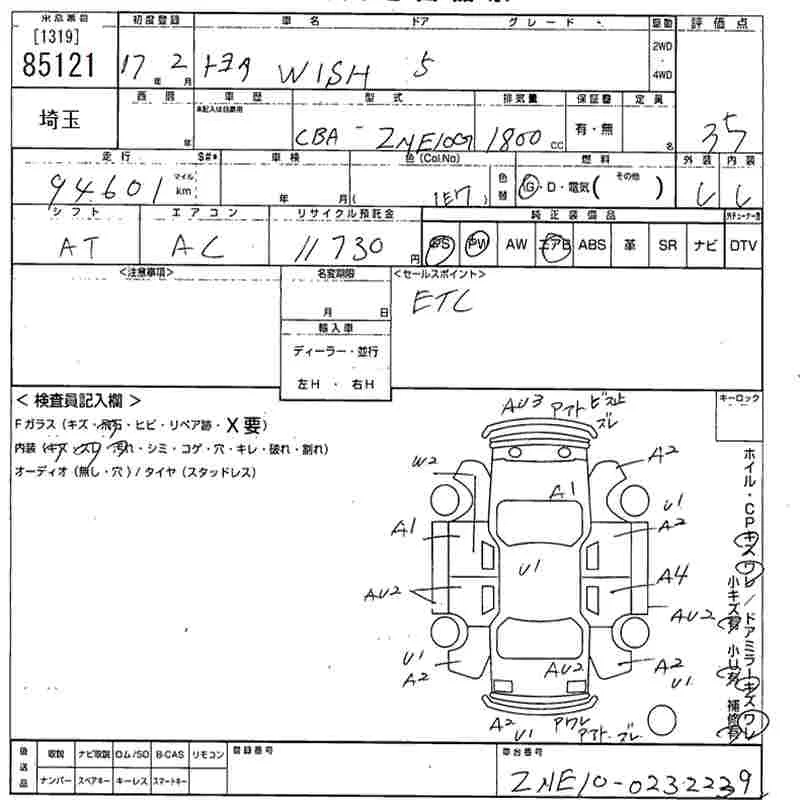 [1319]
85121
初度登録 車名 ドア グレード 駆動 評価点
17年 2月 トヨタ WISH 5 2WD・4WD
埼玉
西暦 車歴 型式 排気量 保証書 定員
未記入は自家用
年 CBA- ZNE10G 1800cc 有・無 名 35
走行 S#* 車検 色(Col.No) 燃料 外装 内装
94601 マイル km 年 月( 1E7 ) 色替 G・D・電気( その他 ) L L
シフト エアコン リサイクル預託金 純正装備品
AT AC 11730円 PS PW AW エアB ABS 革 SR ナビ DTV
<注意事項> 名変期限 <セールスポイント>
月 日 ETC
輸入車
ディーラー・並行
左H ・ 右H
<検査員記入欄> キーロック
Fガラス(キズ・飛石・ヒビ・リペア跡・X要)
内装(キズ・スレ・汚れ・シミ・コゲ・穴・キレ・破れ・割れ)
オーディオ(無し・穴)/タイヤ(スタッドレス)
AU3
ズレ
W2 A2
A1 U1
A1 A2
U1
AU2 A4
AU2
U1 AU2 A2
A2 U1
A2 U1 アワレ
アト・ズレ
ホイル・CPキズワレ/ドアミラーキズワレ
小キズ有 小U有 補修有
後送品 取説 ナビ取説 ロム/SD B-CAS リモコン 登録番号 車台番号
ナンバー スペアキー キーレス スマートキー
ZNE10-0232239